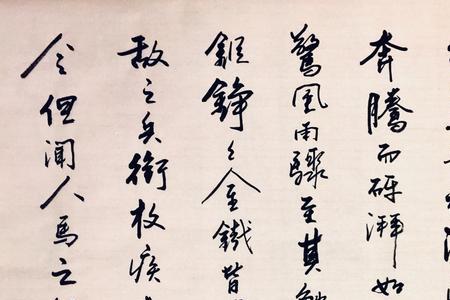 奔騰而砰湃如
驚風雨驟至其
鏦錚々金鐵皆
敵之兵銜枚疾
令但聞人馬之